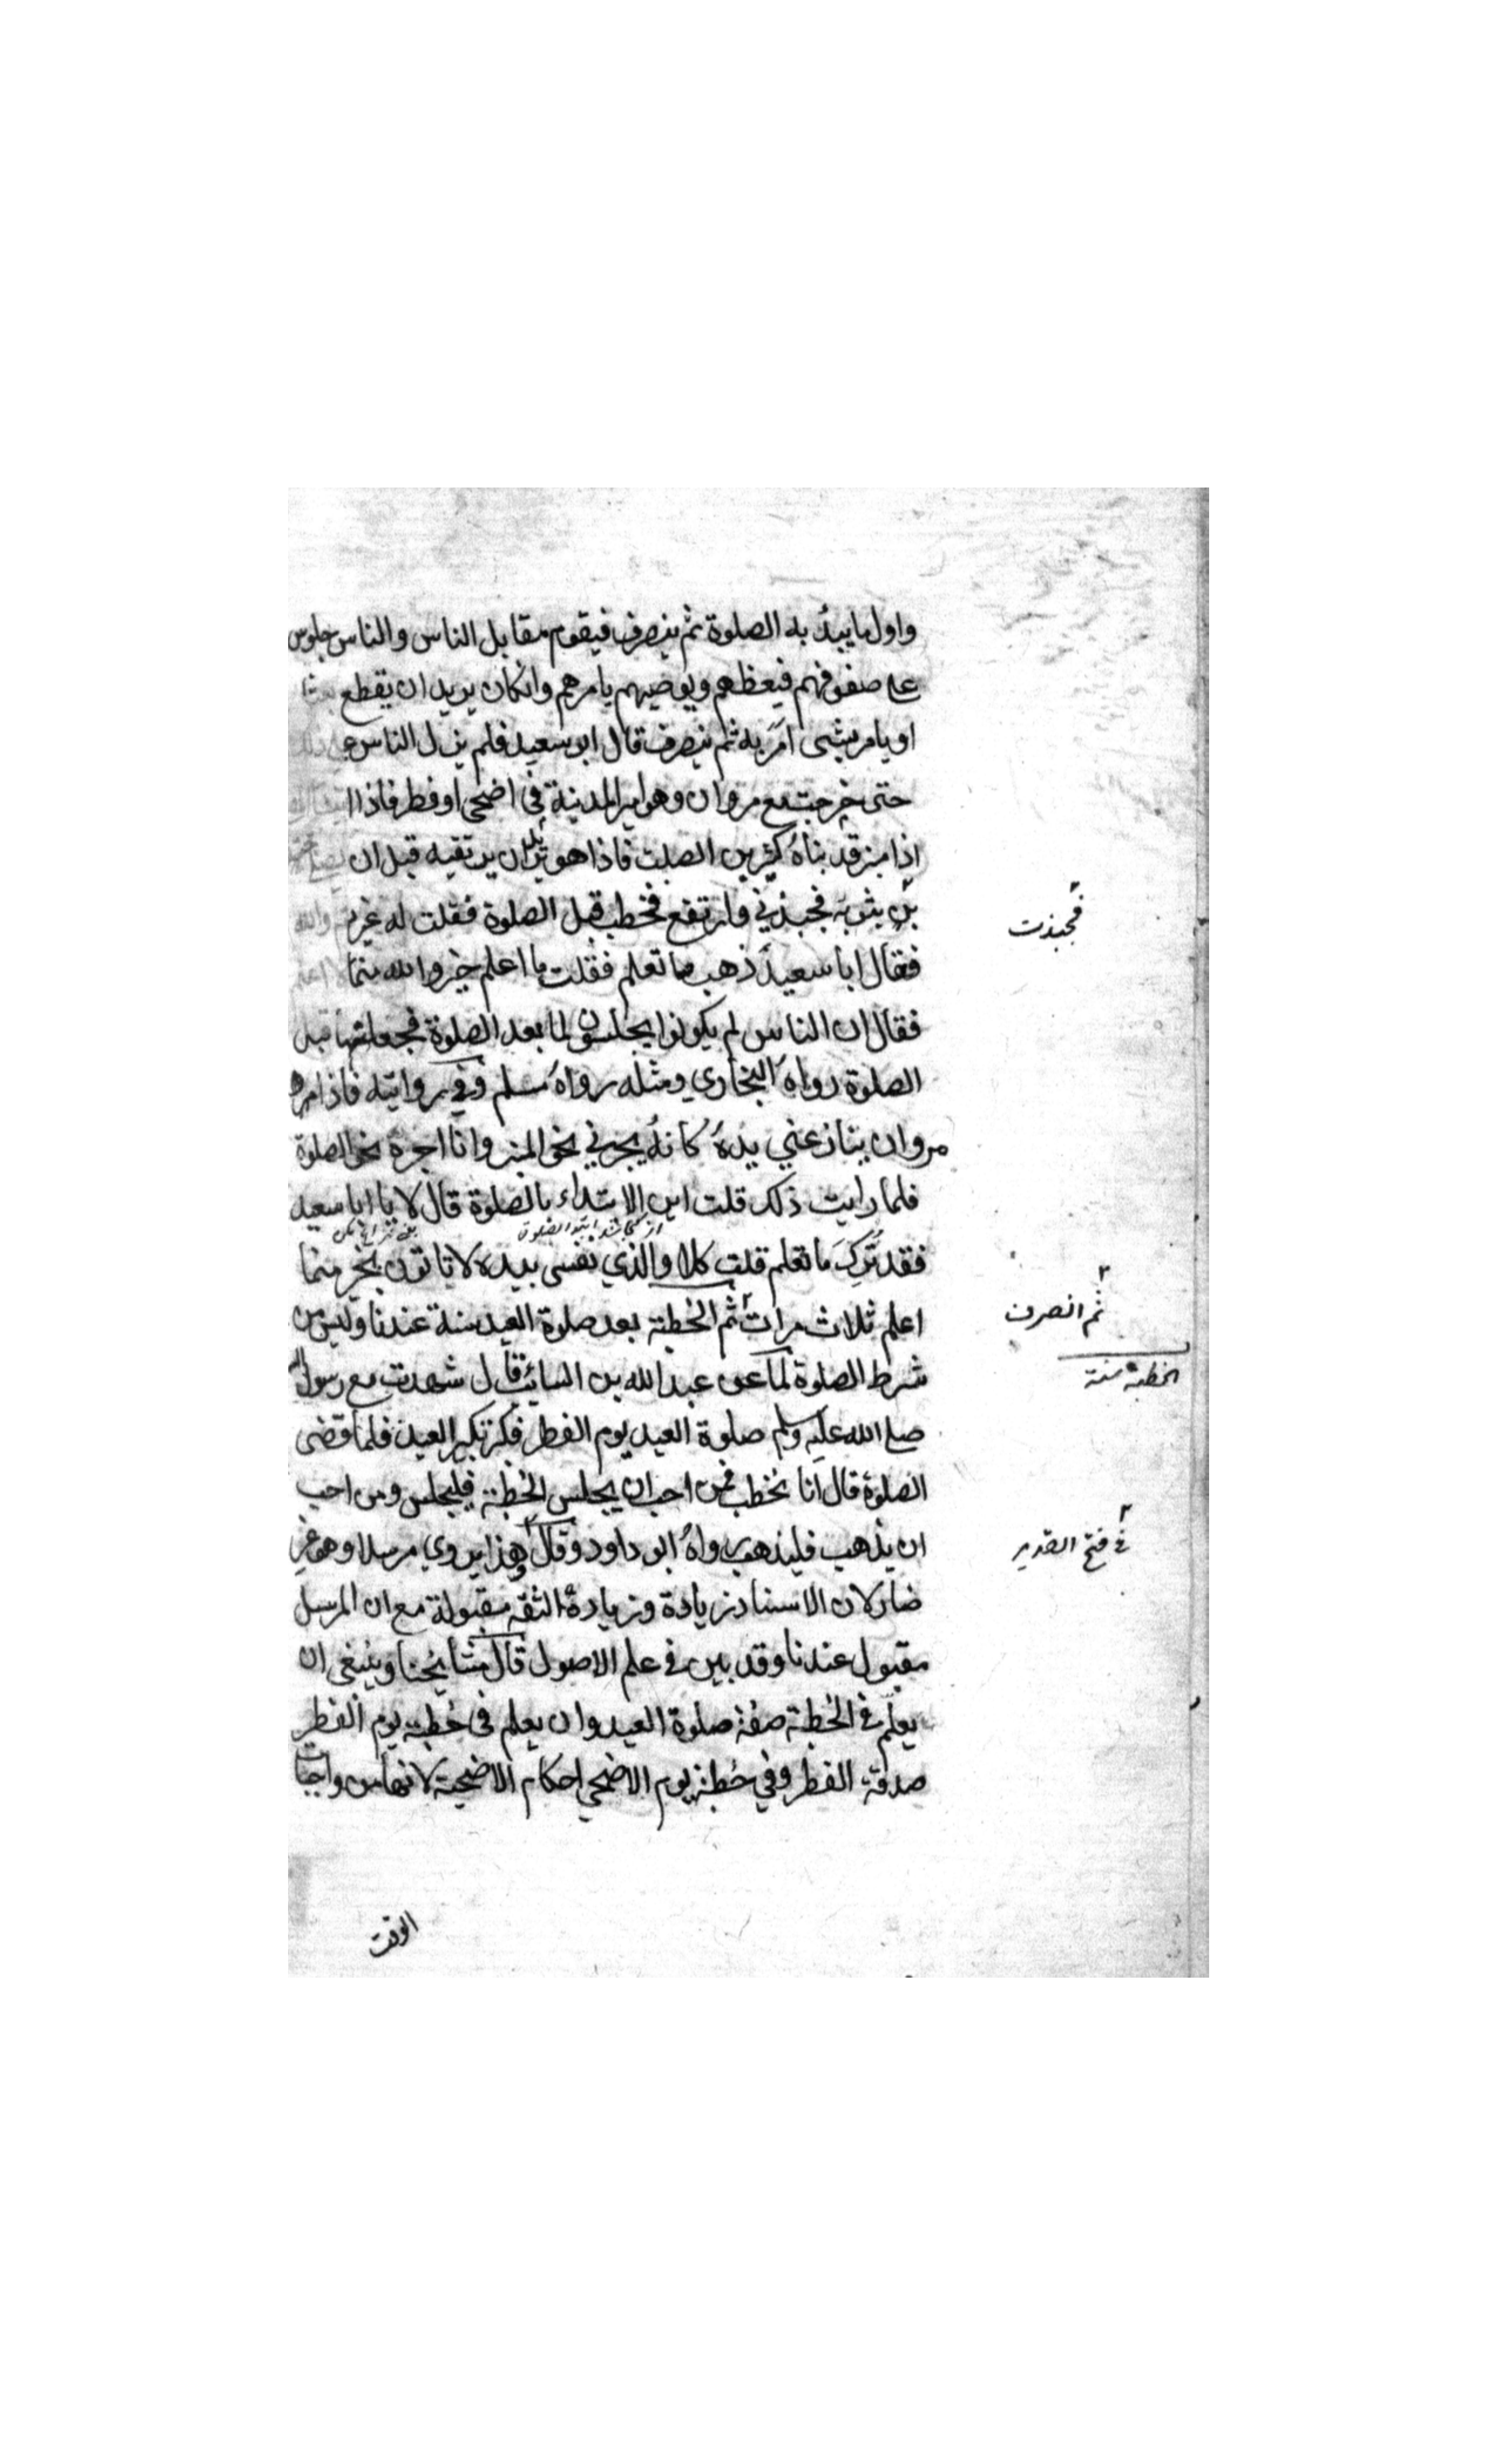 واول ما يبدٔ به الصلوة ثم ينصرف فيقوم مقابل الناس والناس جلوس
على صفوفهم فيعظهم ويوصيهم يامرهم وانكان يريد ان يقطع بعثا
او يامر بشى امر به ثم ينصرف قال ابو سعيد فلم يزل الناس على ذلك
حتى خرجت مع مروان وهو امير المدينة فى اضحى او فطر فاذا ا
اذا منبر قد بناه كثير بن الصلت فاذا هو يريد ان يرتقيه قبل ان يصلى
بثوبه فجبذني فارتفع فخطب قبل الصلوة فقلت له غيرتم والله
فجبذت
فقال ابا سعيد ذهب ما تعلم فقلت ما اعلم خير والله مما لا اعلم
فقال ان الناس لم يكونوا يجلسون لنا بعد الصلوة فجعلتها قبل
الصلوة رواه البخاري ومثله رواه مسلم وفي روايته فاذا
مروان ينازعني يده كانه يجرني نحو المنبر وانا اجره نحو الصلوة
فلما رايت ذلك قلت اين الابتداء بالصلوة قال لا يا ابا سعيد
فقد ترك ما تعلم قلت كلا والذي نفسى بيده لا تاتون بخير مما
اعلم ثلاث مرات ثم الخطبة بعد صلوة العيد سنة عندنا وليس من
ثم انصرف
شرط الصلوة لما عن عبد الله بن السائب قال شهدت مع رسول الله
الخطبة سنة
صلى الله عليه وسلم صلوة العيد يوم الفطر فكبر تكبير العيد فلما قضى
الصلوة قال انا نخطب فمن احب ان يجلس الخطبة فليجلس ومن احب
ان يذهب فليذهب رواه ابو داود وقال هذا يروي مرسلا وهو غير
فى فتح القدير
ضار لان الاسناد زيادة وزيادة الثقه مقبولة مع ان المرسل
مقبول عندنا وقد بين فى علم الاصول قال مشايخنا وينبغى ان
يعلم فى الخطبة صفة صلوة العيد وان يعلم فى خطبة يوم الفطر
صدقة الفطر وفي خطبة يوم الاضحي احكام الاضحية لانها من واجبات
الوقت